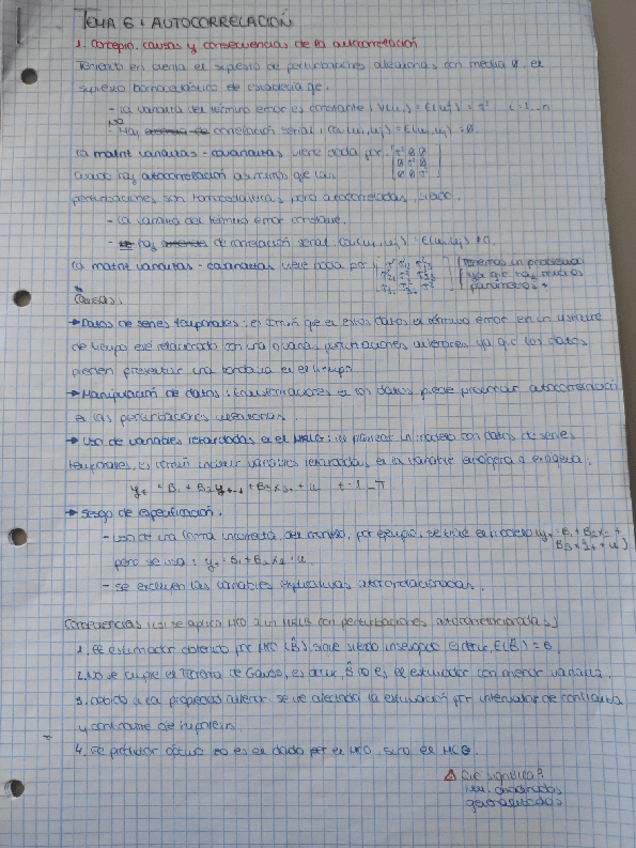 TEMA 6: AUTOCORRELACIÓN
1. concepto, causas y consecuencias de la autocorrelación
Teniendo en cuenta el supuesto de perturbaciones aleatorias con media 0, el
supuesto homocedástico se establecía qe:
- La varianza del término error es constante; V(ui) = E(ui²) = σ² i=1...n
- No hay correlación serial; cov(ui,uj) = E(ui,uj) = 0.
La matriz varianzas-covarianzas viene dada por
cuando hay autocorrelación asumimos que las
perturbaciones son homocedásticas, pero autocorreladas, siendo:
- La varianza del término error constante.
- hay de correlación serial: cov(ui,uj) = E(ui,uj) ≠ 0.
La matriz varianzas-covarianzas viene dada por
Tenemos un problema
ya que hay muchos
parámetros.
Causas:
→ Datos de series temporales: es común que en estos datos el término error en un
de tiempo esté relacionado con una o varias perturbaciones anteriores, ya que los datos
pienen presentar una tendencia en el tiempo.
→ Manipulación de datos: transformaciones en los datos puede provocar autocorrelación
en las perturbaciones aleatorias.
→ Uso de variables retardadas en el MRLG: al plantear un modelo con datos de series
temporales, es común incluir variables retardadas, en la variable endógena o exógena:
yt = B1 + B2 yt-1 + B3 x3t + u t=1...T
→ Sesgo de especificación.
- Uso de una forma incorrecta del modelo, por ejemplo, se tiene el modelo (yt = B1 + B2x2 +
B3x3t + u)
pero se usa: yt = B1 + B2x2 + u.
- se excluyen las variables explicativas autorrelacionadas.
Consecuencias (si se aplica MCO a un MRLG con perturbaciones autocorrelacionadas)
1. El estimador obtenido por MCO (B̂), sigue siendo insesgado es decir, E(B̂) = B.
2. No se cumple el Teorema de Gauss, es decir, B̂ no es el estimador con menor varianza.
3. Debido a la propiedad anterior se ve afectada la estimación por intervalos de confianza
y contraste de hipótesis.
4. El predictor óptimo no es el dado por el MCO, sino el MCG.
⚠ Qué significa?
min. cuadrados
generalizados